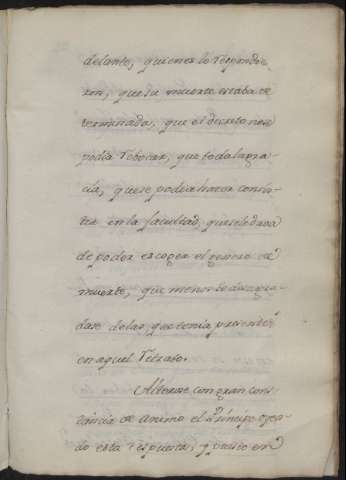 delante, quienes lo respondie-
ron, que su muerte estaba de
terminada, que el decreto no se
podia rebocar, que toda la gra-
cia, que se podia hacer consis-
tia en la facultad, que se le daba
de poder escoger el genero de
muerte, que menos te desagra-
dase de las, que tenia presentes
en aquel retrato.
con gran cons-
tancia de animo el Principe oyen-
do esta respuesta, y puesto en